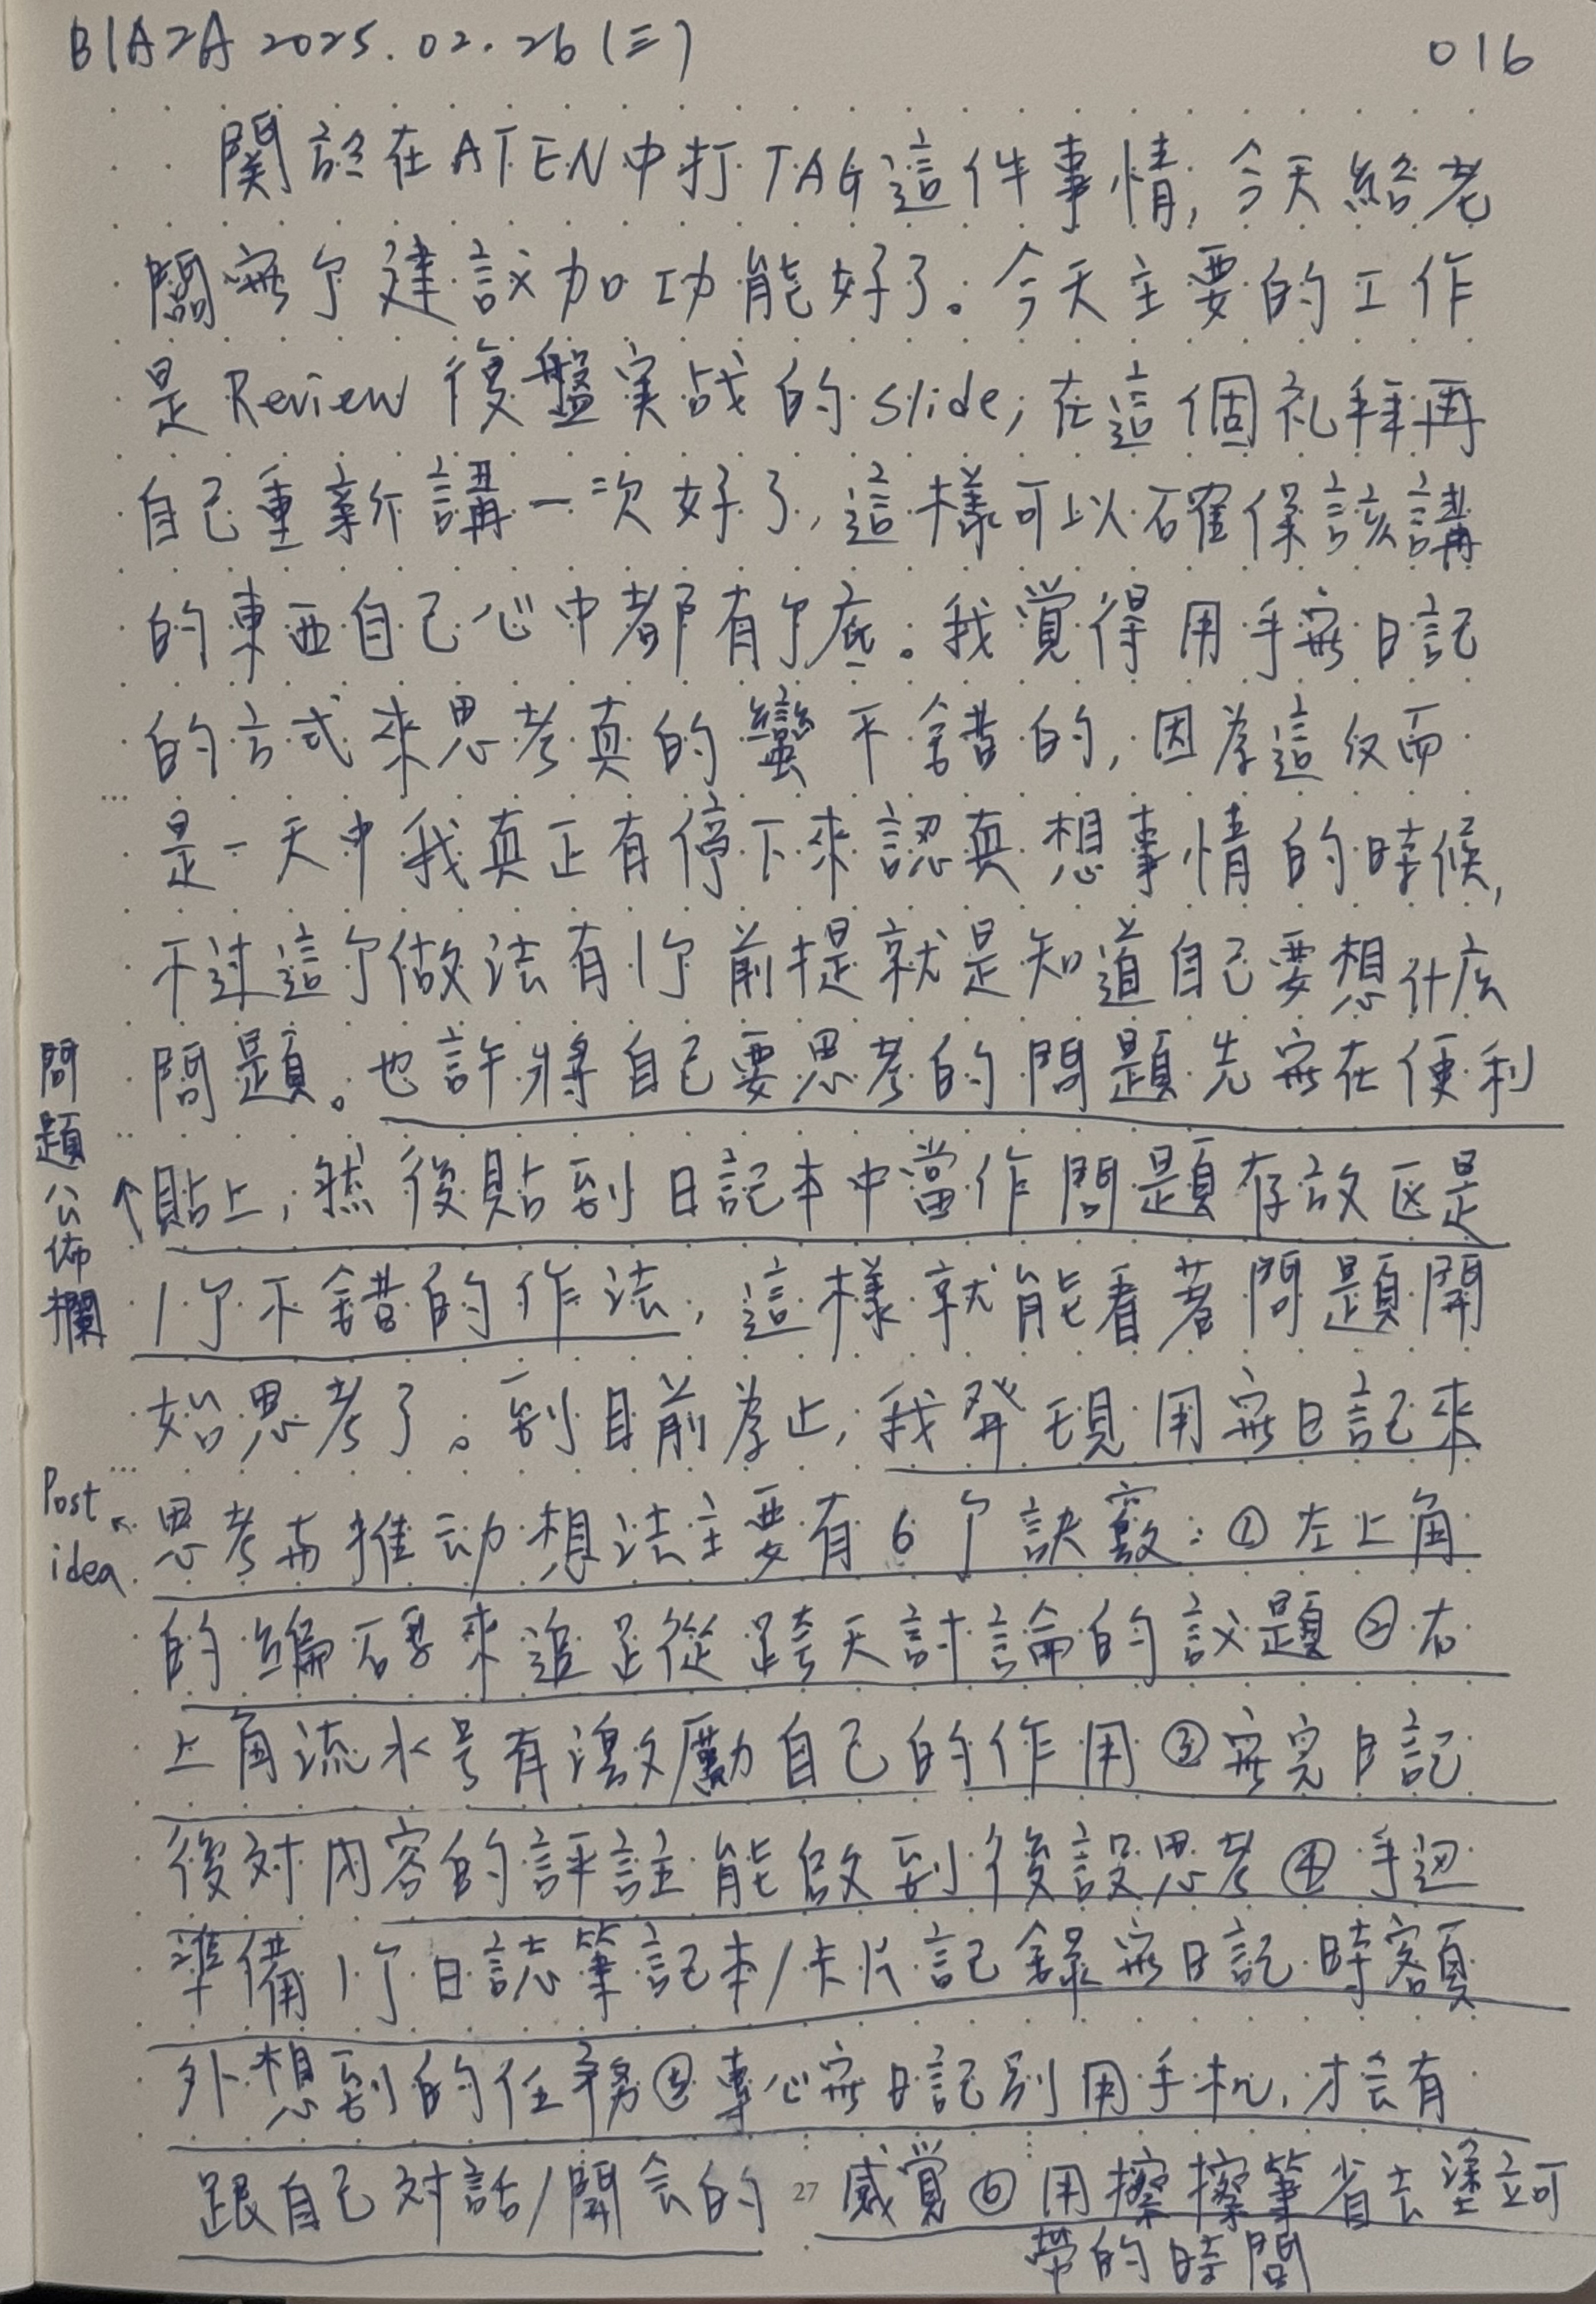 B1A2A 2025.02.26 (三)
016
関於在ATEN中打TAG這件事情, 今天給老
闆寫个建議加功能好了。今天主要的工作
是Review 復盤実战的slide, 在這個礼拜再
自己重新講一次好了, 這樣可以確保該講
的東西自己心中都有个底。我覚得用手寫日記
的方式來思考真的蠻不錯的, 因為這反而
是一天中我真正有停下來認真想事情的時候,
不过這个做法有1个前提就是知道自己要想什広
問題。也許將自己要思考的問題先寫在便利
貼上, 然後貼到日記本中當作問題存放区是
1个不錯的作法, 這樣就能看著問題開
始思考了。到目前為止, 我発現用寫日記來
思考与推动想法主要有6个訣竅: ①左上角
的編碼來追蹤跨天討論的議題 ②右
上角流水号有激勵自己的作用 ③寫完日記
後对內容的評註能啟到後設思考 ④手边
準備1个日誌筆記本/卡片記錄寫日記時額
外想到的任務 ⑤專心寫日記別用手机, 才会有
跟自己对話/開会的感覚 ⑥用擦擦筆省去塗立可
帶的時間
問題公佈欄
↑
Post idea
27